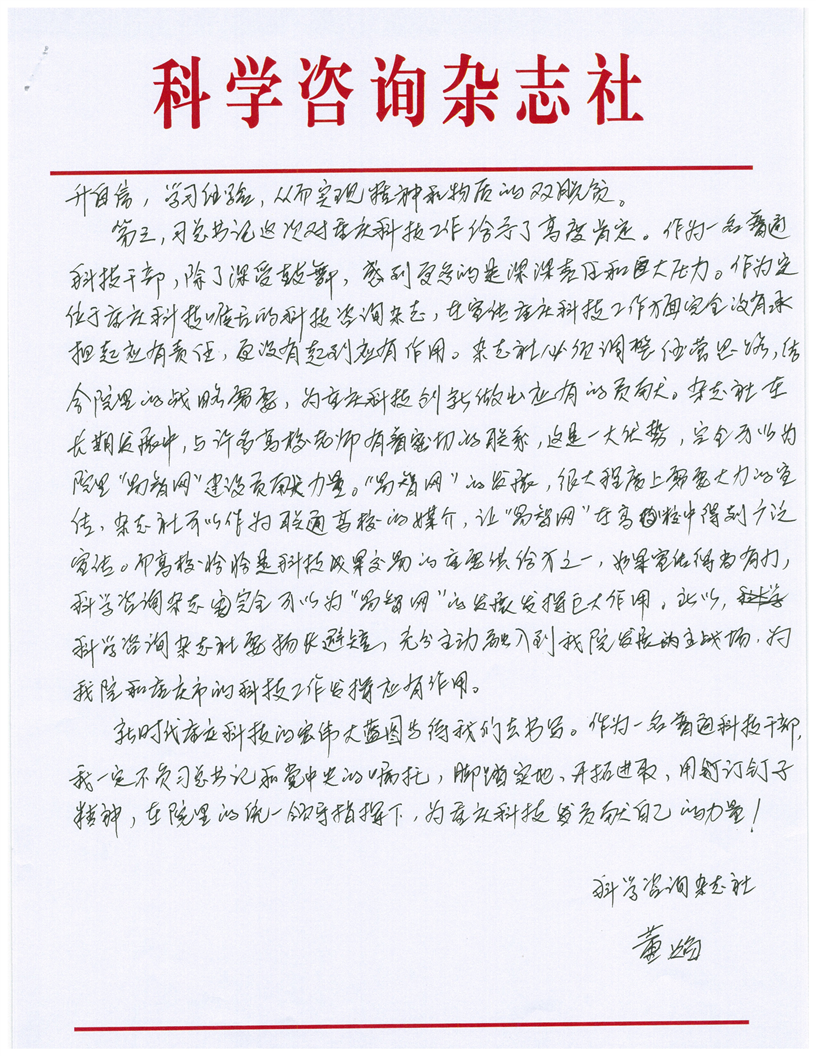 科学咨询杂志社
升自信，学习经验，从而实现精神和物质的双脱贫。
第三，习总书记这次对重庆科技工作给予了高度肯定。作为一名普通
科技干部，除了深受鼓舞，感到更多的是深深责任和巨大压力。作为定
位于重庆科技喉舌的科技咨询杂志，在宣传重庆科技工作方面完全没有承
担起应有责任，更没有起到应有作用。杂志社必须调整经营思路，结
合院里的战略需要，为重庆科技创新做出应有的贡献。杂志社在
长期发展中，与许多高校老师有着密切的联系，这是一大优势，完全可以为
院里“易智网”建设贡献力量。“易智网”的发展，很大程度上需要大力的宣
传，杂志社可以作为联通高校的媒介，让“易智网”在高校中得到广泛
宣传。而高校恰恰是科技成果交易的重要供给方之一，如果宣传得当有力，
科学咨询杂志完全可以为“易智网”的发展发挥巨大作用。所以，科学
科学咨询杂志社要扬长避短，充分主动融入到我院发展的主战场，为
我院和重庆市的科技工作发挥应有作用。
新时代重庆科技的宏伟大蓝图等待我们去书写。作为一名普通科技干部，
我一定不负习总书记和党中央的嘱托，脚踏实地，开拓进取，用钉钉子
精神，在院里的统一领导指挥下，为重庆科技贡献自己的力量！
科学咨询杂志社
董